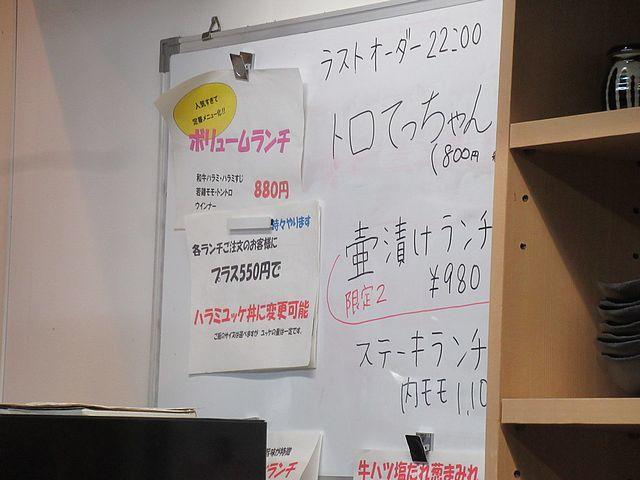 ラストオーダー 22:00
人気すぎて
定番メニュー化!!
ボリュームランチ
和牛ハラミ・ハラミすじ
若鶏モモ・トントロ
ウインナー
880円
トロてっちゃん
(800円
時々やります
各ランチご注文のお客様に
プラス550円で
ハラミユッケ丼に変更可能
ご飯のサイズは選べますが ユッケの量は一定です。
壷漬けランチ
¥980
限定2
ステーキランチ
内モモ 1,10
ランチ
牛ハツ塩だれ葱まみれ